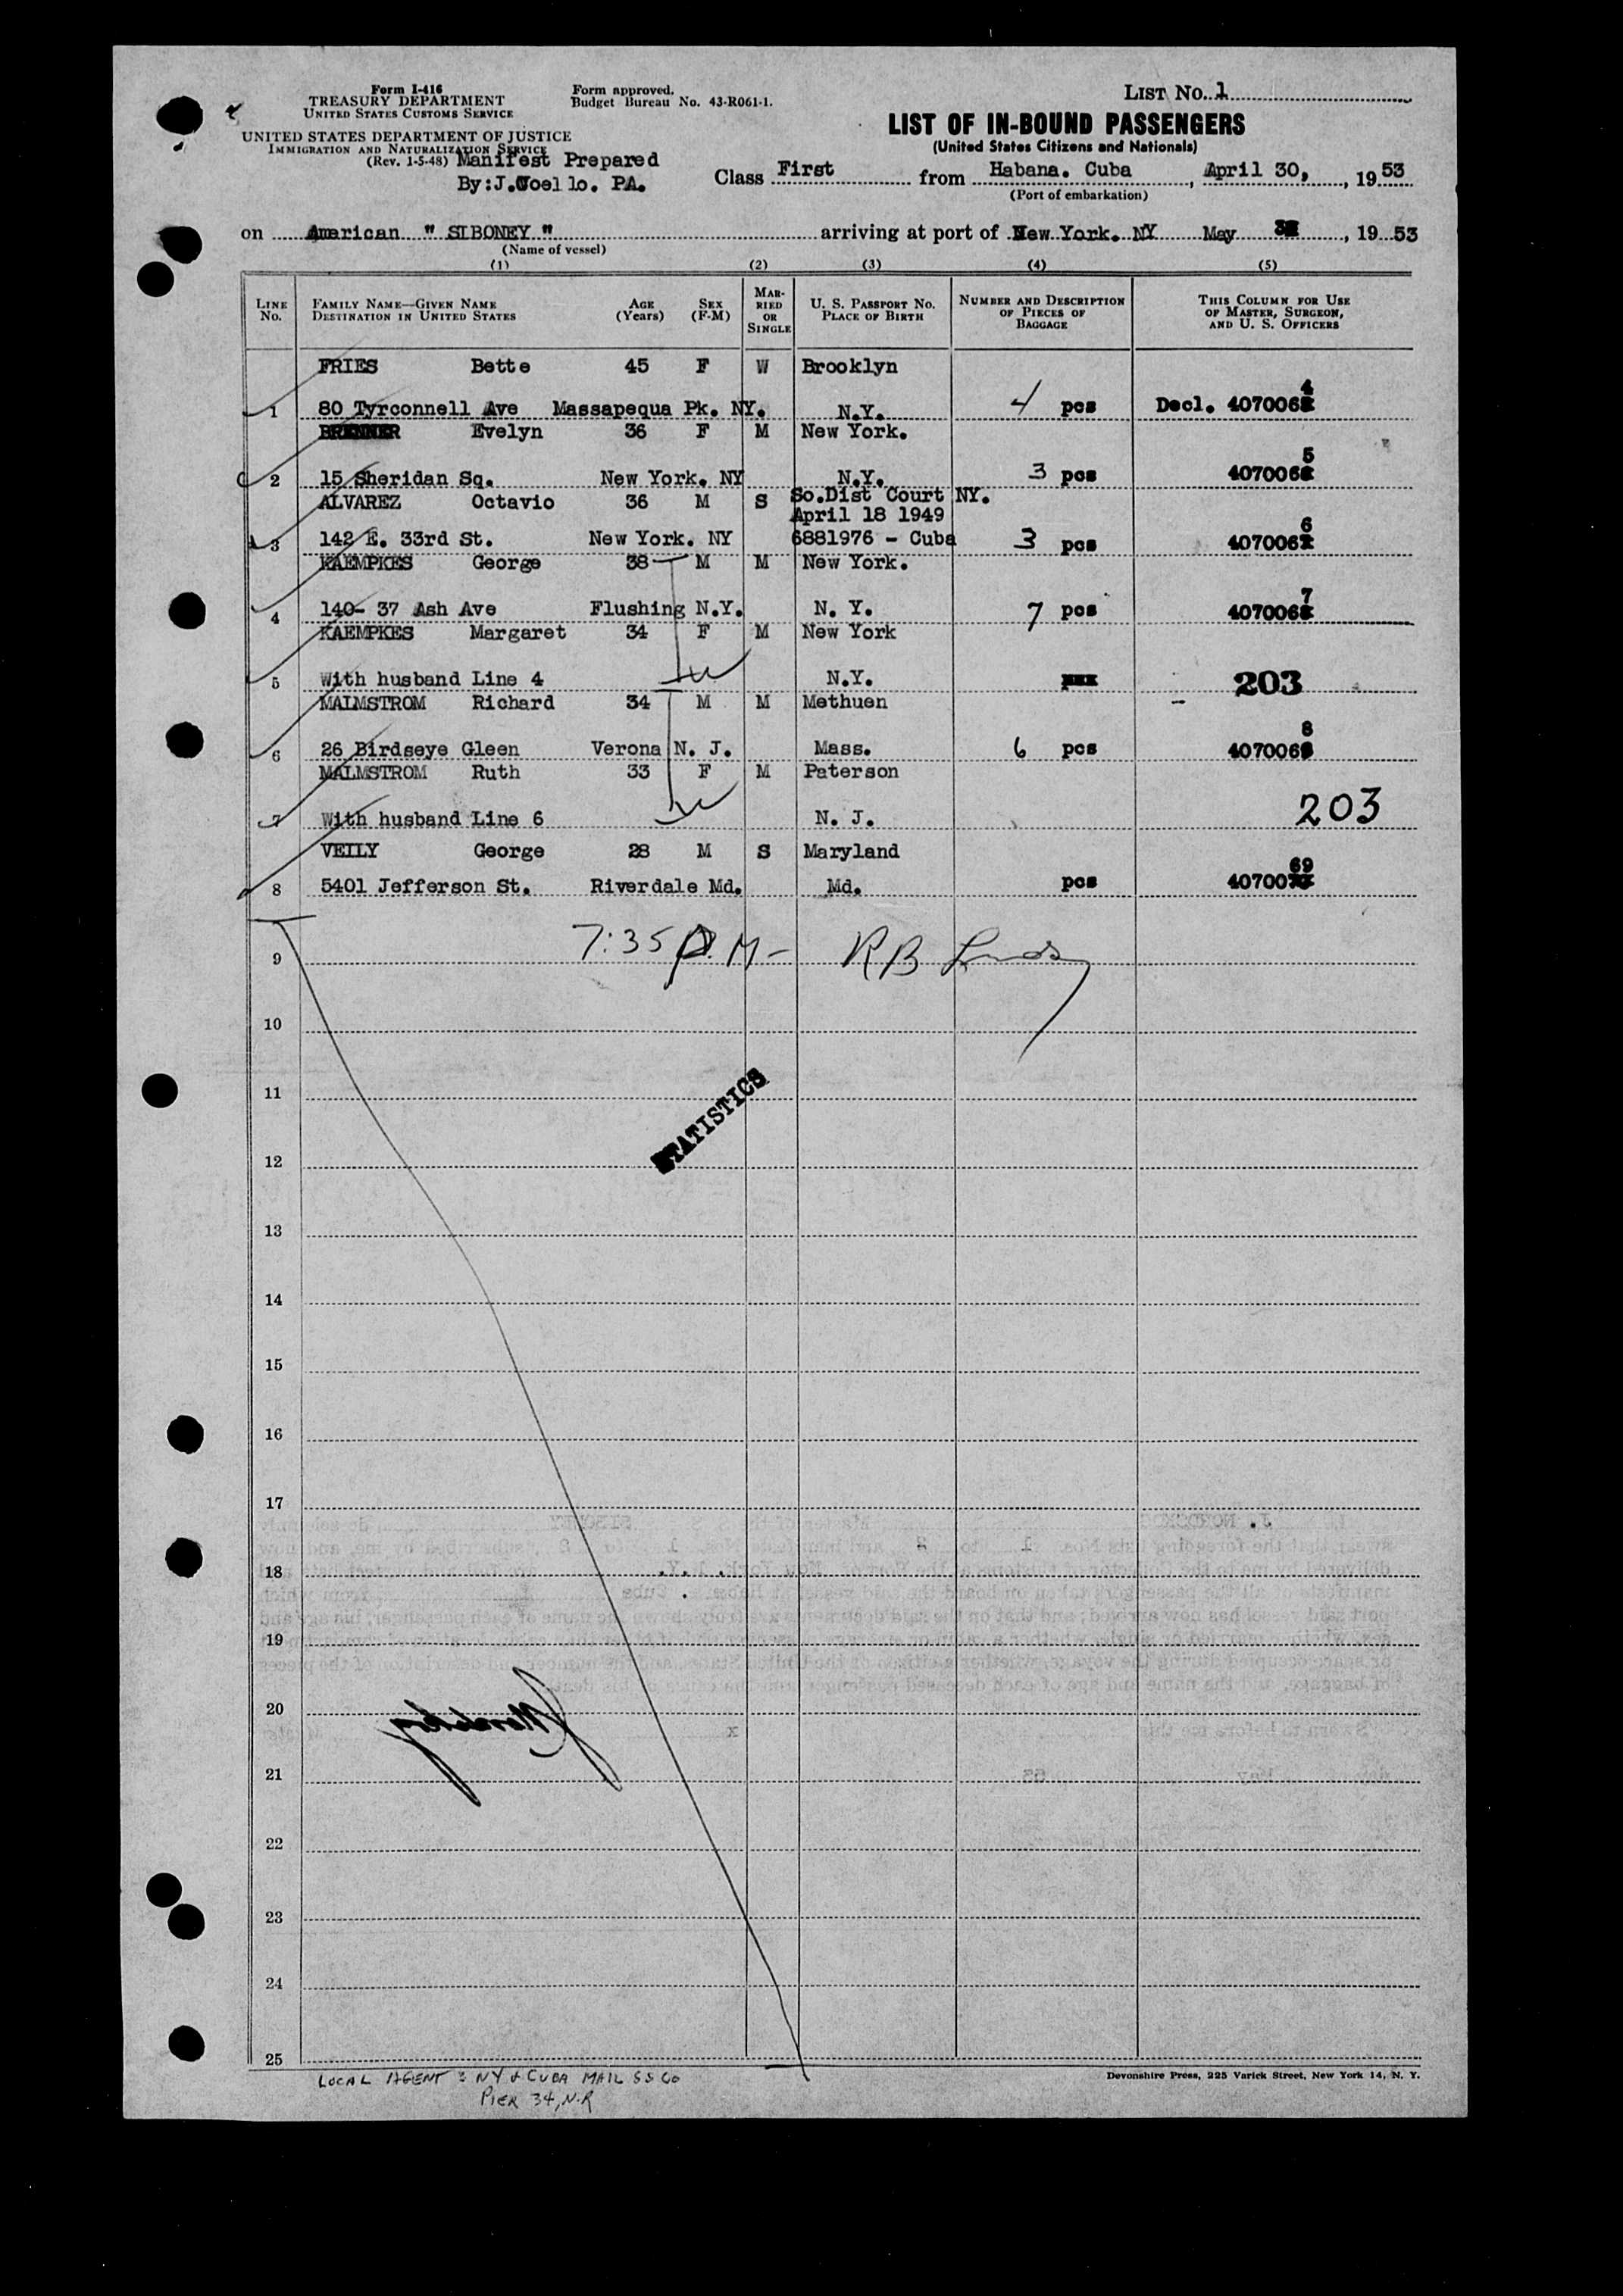 Form I-416
TREASURY DEPARTMENT
UNITED STATES CUSTOMS SERVICE
UNITED STATES DEPARTMENT OF JUSTICE
IMMIGRATION AND NATURALIZATION SERVICE
(Rev. 1-5-48) Manifest Prepared
By:J. PA.
Form approved.
Budget Bureau No. 43-R061-1.
LIST No. 1
LIST OF IN-BOUND PASSENGERS
(United States Citizens and Nationals)
Class First from Habana. Cuba, April 30, 1953
(Port of embarkation)
on American " SIBONEY " arriving at port of New York. NY May , 1953
(Name of vessel)
(1) (2) (3) (4) (5)
LINE No. FAMILY NAME—GIVEN NAME DESTINATION IN UNITED STATES AGE (Years) SEX (F-M) MARRIED OR SINGLE U. S. PASSPORT No. PLACE OF BIRTH NUMBER AND DESCRIPTION OF PIECES OF BAGGAGE THIS COLUMN FOR USE OF MASTER, SURGEON, AND U. S. OFFICERS
FRIES Bette 45 F W Brooklyn
1 80 Tyrconnell Ave Massapequa Pk. NY. N.Y. 4 pcs Decl. 4070064
BRENNER Evelyn 36 F M New York.
2 15 Sheridan Sq. New York. NY N.Y. 3 pcs 4070065
ALVAREZ Octavio 36 M S So.Dist Court NY.
April 18 1949
3 142 E. 33rd St. New York. NY 6881976 - Cuba 3 pcs 4070066
KAEMPKES George 38 M M New York.
4 140- 37 Ash Ave Flushing N.Y. N. Y. 7 pcs 4070067
KAEMPKES Margaret 34 F M New York
5 With husband Line 4 N.Y. 203
MALMSTROM Richard 34 M M Methuen
6 26 Birdseye Gleen Verona N. J. Mass. 6 pcs 4070068
MALMSTROM Ruth 33 F M Paterson
7 With husband Line 6 N. J. 203
VEILY George 28 M S Maryland
8 5401 Jefferson St. Riverdale Md. Md. pcs 4070069
9 7:35 P.M- RB
10
11
STATISTICS
12
13
14
15
16
17
18
19
20
21
22
23
24
25
LOCAL AGENT : NY & CUBA MAIL SS Co
PIER 34, N.R
Devonshire Press, 225 Varick Street, New York 14, N. Y.